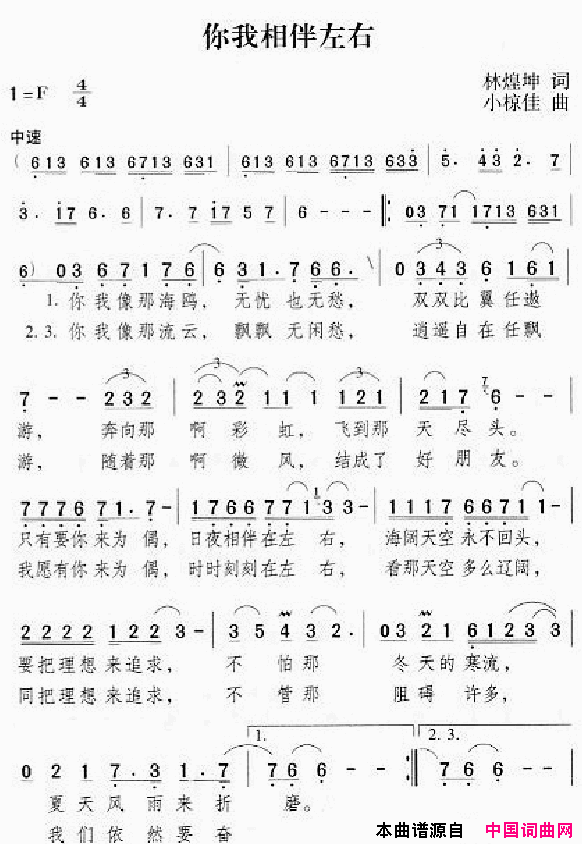 你我相伴左右
1=F 4/4
林煌坤 词
小椋佳 曲
中速
(613 613 6713 631 | 613 613 6713 633 | 5. 43 2. 7
3. 17 6. 6 | 7. 7 17 5 7 | 6 - - - :03 71 1713 631
6) 03 67176 | 631. 7 66. | 03436 161
1. 你我像那海鸥， 无忧也无愁， 双双比翼任遨
2. 3. 你我像那流云， 飘飘无闲愁， 逍遥自在任飘
7 - - 232 | 232 11 121 | 217 6 -
游， 奔向那 啊彩虹， 飞到那 天尽头。
游， 随着那 啊微风， 结成了 好朋友。
7776 71. 7 - | 1766 77 133 | 1117 6671 -
只有要你来为偶， 日夜相伴在左右， 海阔天空永不回头，
我愿有你来为偶， 时时刻刻在左右， 看那天空多么辽阔，
2222 122 3 - | 35432. | 03 21 61233 -
要把理想来追求， 不怕那 冬天的寒流，
同把理想来追求， 不管那 阻碍许多，
1. 2. 3.
0 217. 31. 7 | 766 - - :| 766 - -
夏天风雨来折磨。
我们依然要奋
本曲谱源自 中国词曲网